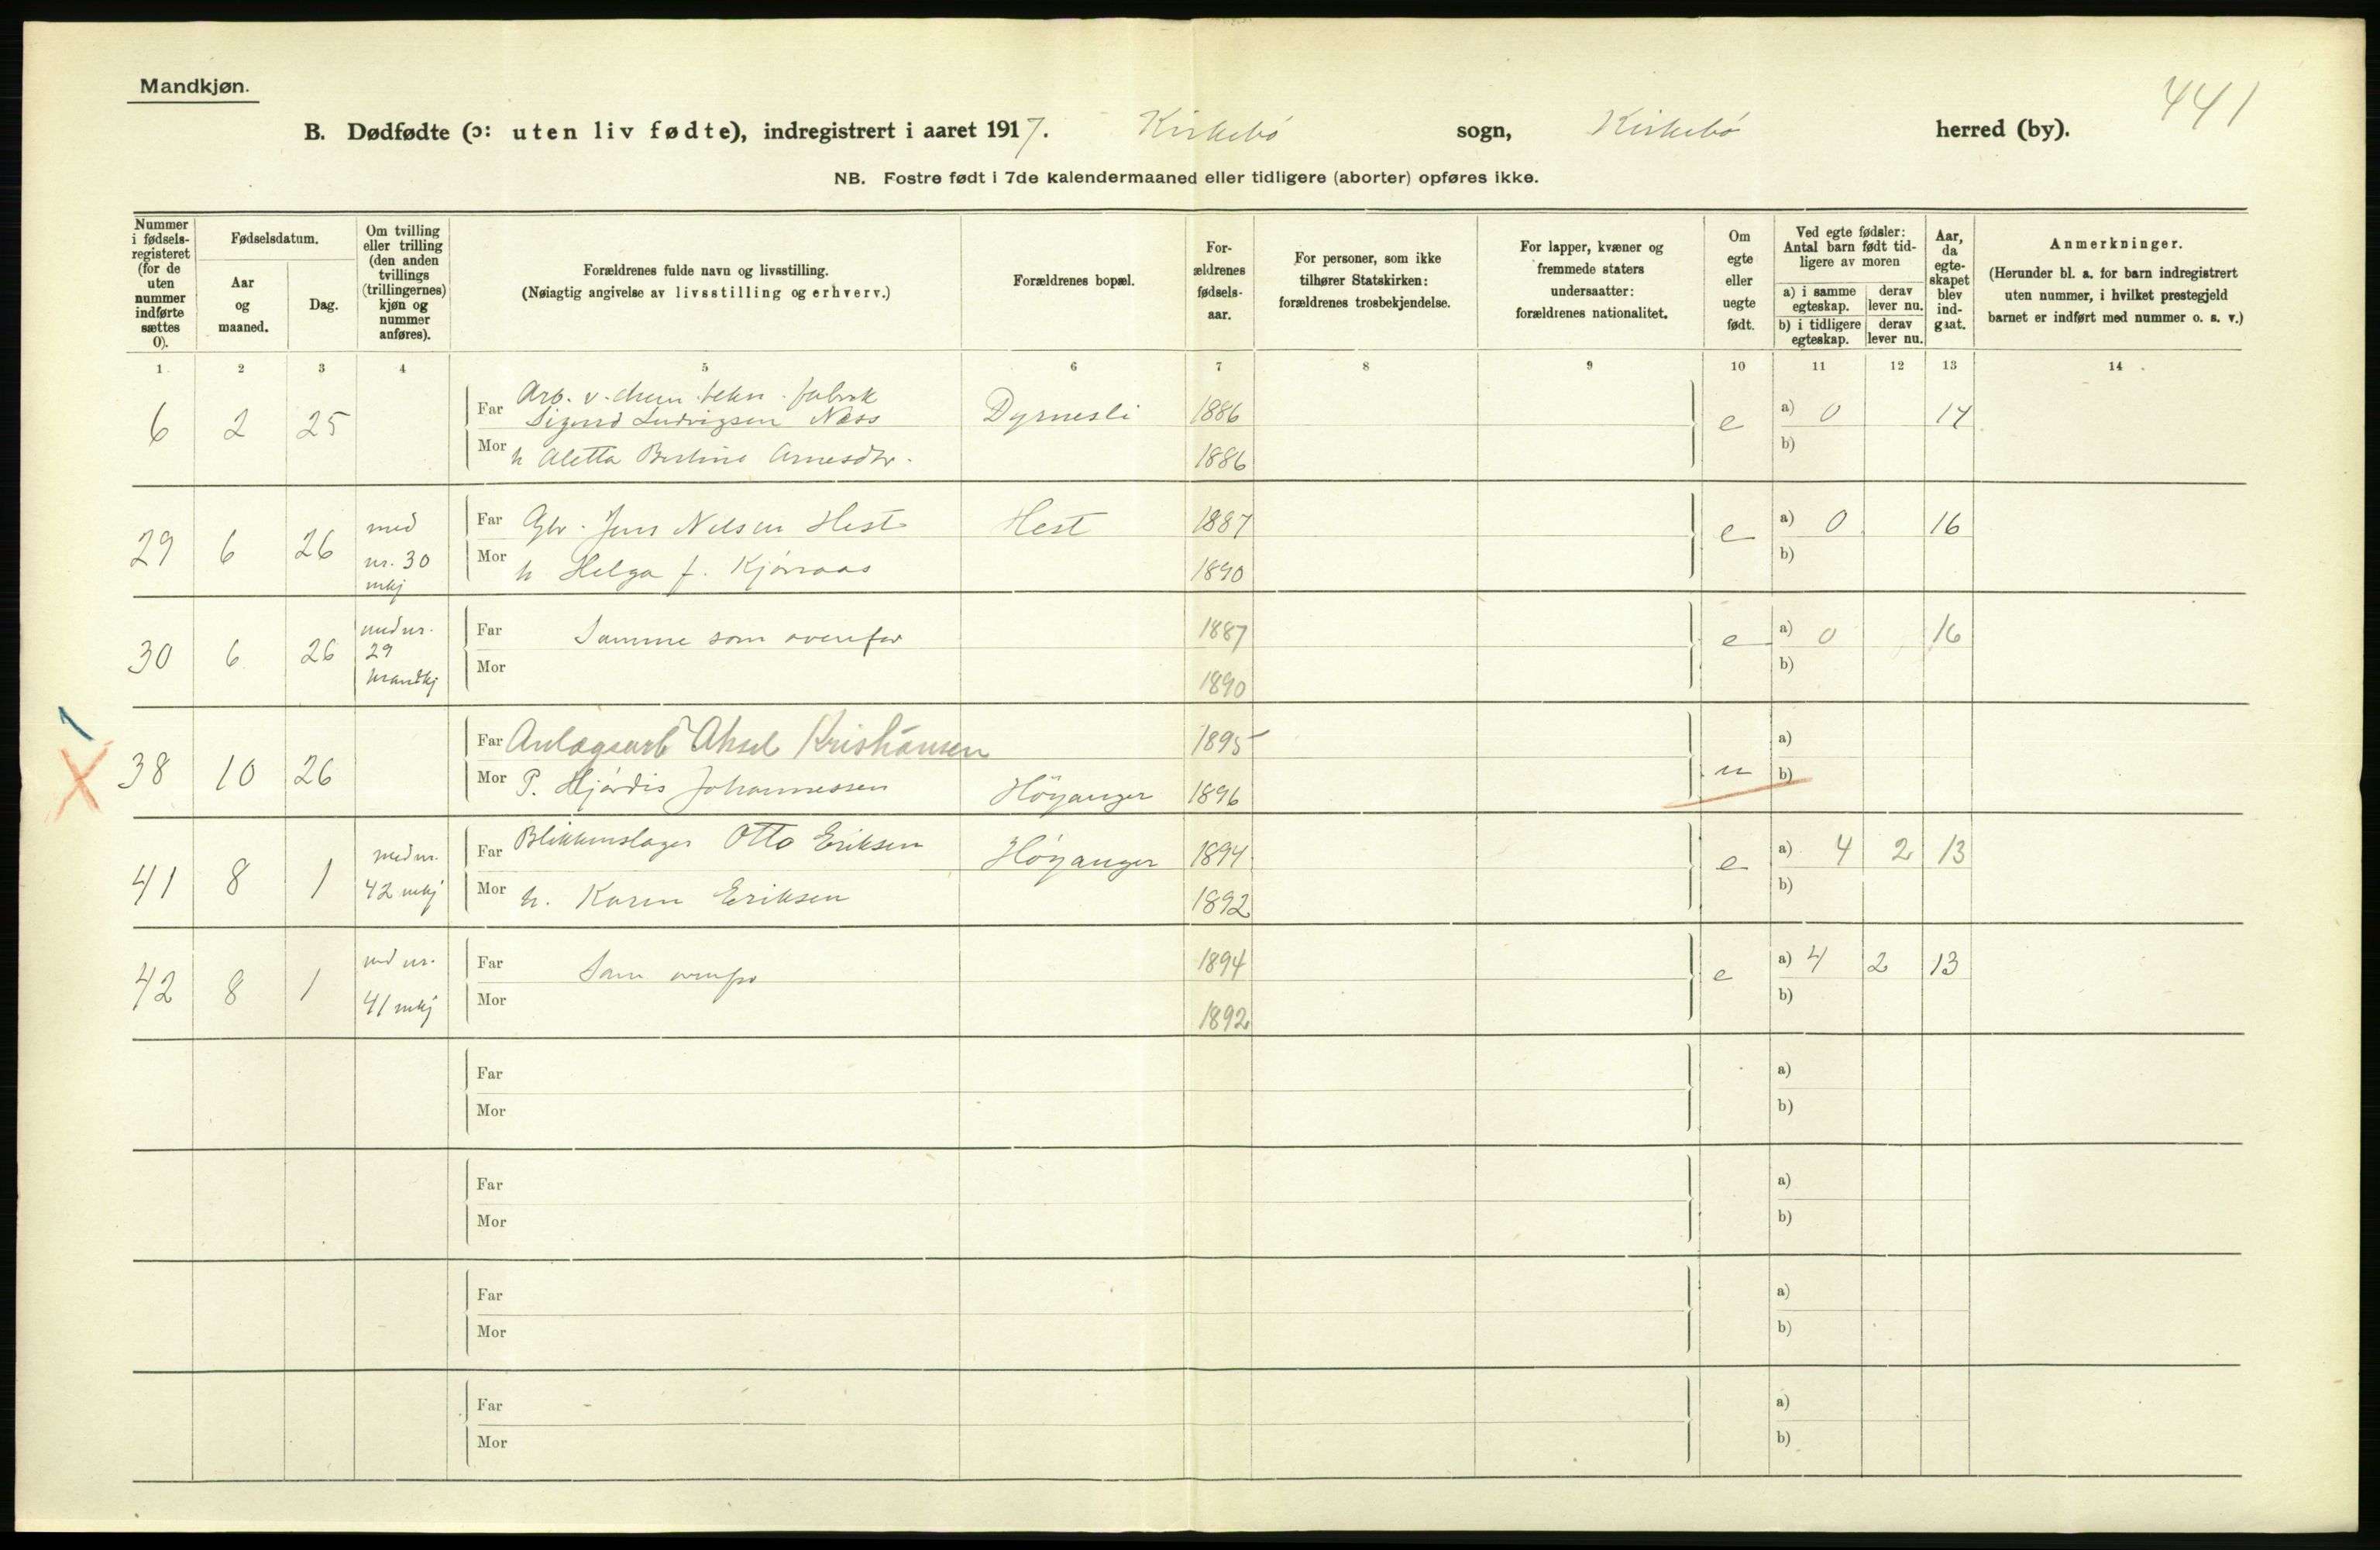 Mandkjøn.
441
B. Dødfødte (ɔ: uten liv fødte), indregistrert i aaret 1917. Kirkebö sogn, Kirkebö herred (by).
NB. Fostre født i 7de kalendermaaned eller tidligere (aborter) opføres ikke.
Nummer i fødsels-registeret (for de uten nummer indførte sættes 0).
Fødselsdatum.
Aar og maaned.
Dag.
Om tvilling eller trilling (den anden tvillings (trillingernes) kjøn og nummer anføres).
Forældrenes fulde navn og livsstilling.
(Nøiagtig angivelse av livsstilling og erhverv.)
Forældrenes bopæl.
For-ældrenes fødsels-aar.
For personer, som ikke tilhører Statskirken: forældrenes trosbekjendelse.
For lapper, kvæner og fremmede staters undersaatter: forældrenes nationalitet.
Om egte eller uegte født.
Ved egte fødsler: Antal barn født tid-ligere av moren
a) i samme egteskap. derav lever nu.
b) i tidligere egteskap. derav lever nu.
Aar, da egte-skapet blev ind-gaat.
Anmerkninger.
(Herunder bl. a. for barn indregistrert uten nummer, i hvilket prestegjeld barnet er indført med nummer o. s. v.)
1 2 3 4 5 6 7 8 9 10 11 12 13 14
Arb. v. chem. tekn. fabrik
6 2 25 Far Sigurd Ludvigsen Næss Dyrnesli 1886 e a) 0 14
Mor h Aletta Bertine Arnesdtr. 1886 b)
29 6 26 med nr. 30 mkj Far Gbr. Jens Nilsen Hest Hest 1887 e a) 0 16
Mor h. Helga f. 1890 b)
30 6 26 med nr. 29 mandkj Far Samme som ovenfor 1887 e a) 0 16
Mor 1890 b)
1
X
38 10 26 Far Anlægsarb Aksel Kristiansen 1895 u a)
Mor P. Hjördis Johannessen Höyanger 1896 b)
41 8 1 med nr. 42 mkj Far Blikkenslager Otto Eriksen Höyanger 1894 e a) 4 2 13
Mor h. Karen Eriksen 1892 b)
42 8 1 med nr. 41 mkj Far Som ovenfor 1894 e a) 4 2 13
Mor 1892 b)
Far a)
Mor b)
Far a)
Mor b)
Far a)
Mor b)
Far a)
Mor b)